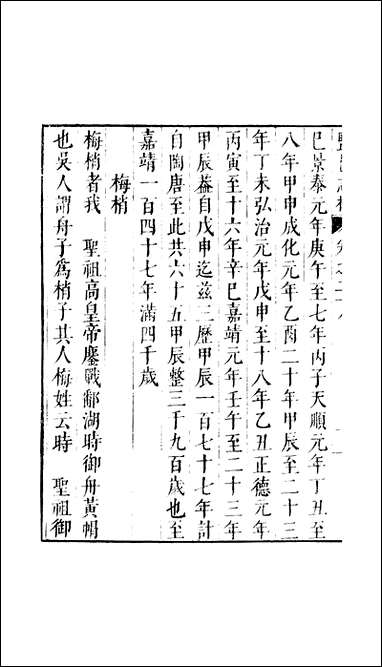 巳景泰元年庚午至七年丙子天順元年丁丑至
八年甲申成化元年乙酉二十年甲辰至二十三
年丁未弘治元年戊申至十八年乙丑正德元年
丙寅至十六年辛巳嘉靖元年壬午至二十三年
甲辰蓋自戊申迄茲三歷甲辰一百七十七年計
自陶唐至此共六十五甲辰整三千九百歲也至
嘉靖一百四十七年滿四千歲
梅梢
梅梢者我 聖祖高皇帝鏖戰鄱湖時御舟黃帽
也吳人謂舟子爲梢子其人梅姓云時 聖祖御